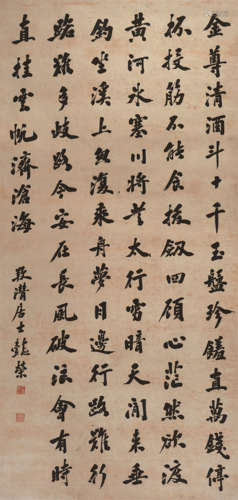 金尊清酒斗十千玉盤珍饈直萬錢停
杯投筯不能食拔劒四顧心茫然欲渡
黃河冰塞川將登太行雪暗天閒来垂
釣坐溪上忽復乘舟夢日邊行路難行
路難多歧路今安在長風破浪會有時
直挂雲帆濟滄海
居士